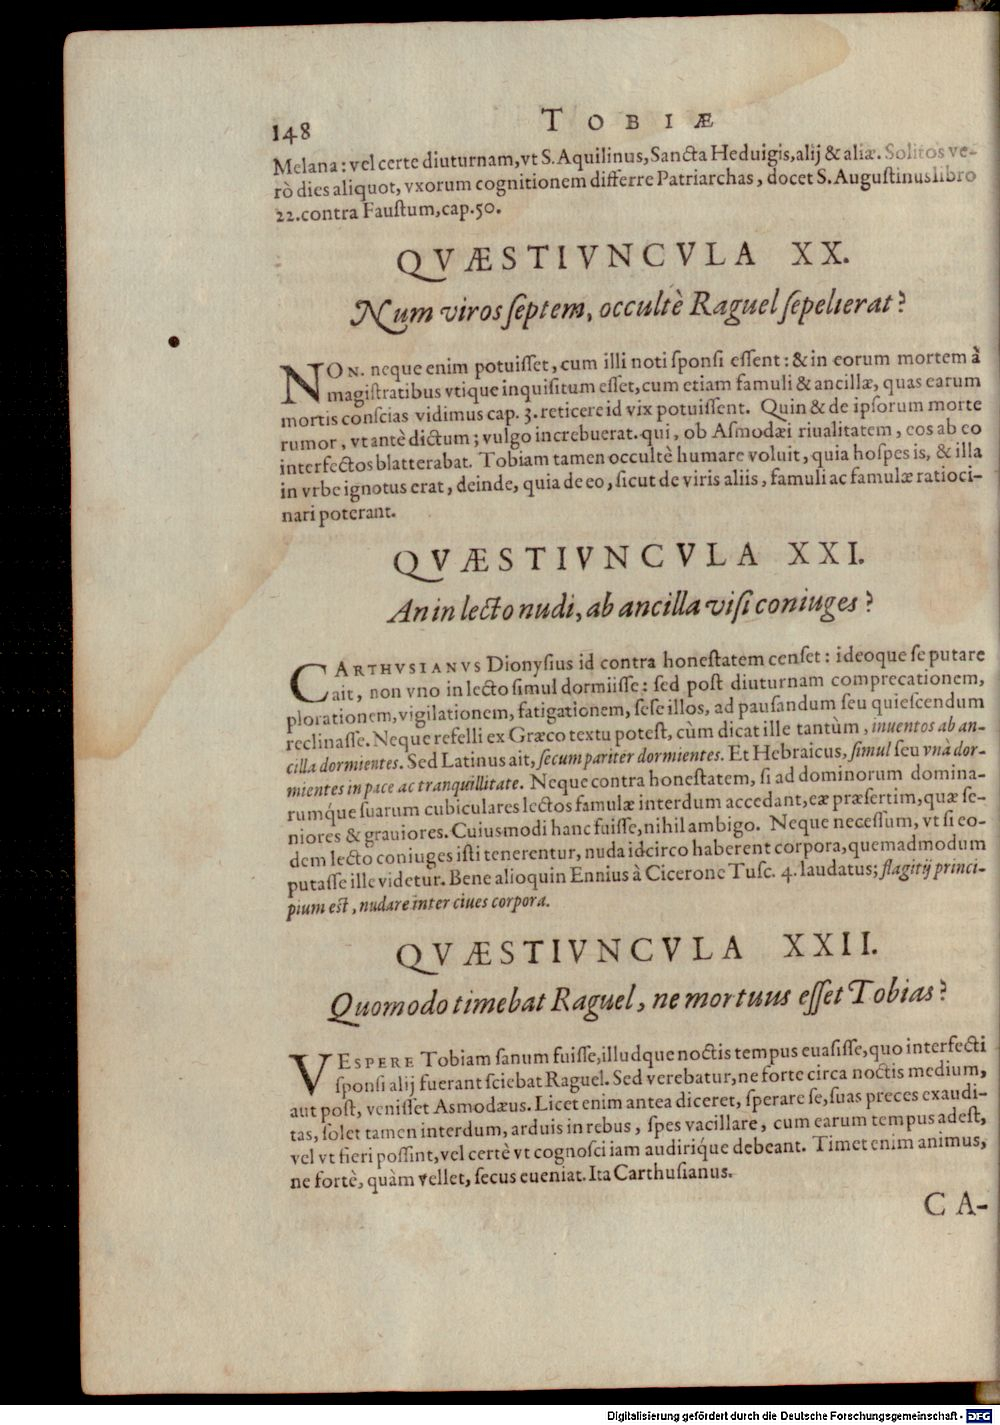 148 TOBIÆ
Melana: vel certe diuturnam, vt S. Aquilinus, Sancta Heduigis, alij & aliæ. Solitos ve-
rò dies aliquot, vxorum cognitionem differre Patriarchas, docet S. Augustinus libro
22. contra Faustum, cap. 50.
QVÆSTIVNCVLA XX.
Num viros ſeptem, occultè Raguel ſepelierat?
NON. neque enim potuiſſet, cum illi noti ſponſi eſſent: & in eorum mortem à
magiſtratibus vtique inquiſitum eſſet, cum etiam famuli & ancillæ, quas earum
mortis conſcias vidimus cap. 3. reticere id vix potuiſſent. Quin & de ipſorum morte
rumor, vt antè dictum; vulgo increbuerat. qui, ob Aſmodæi riualitatem, eos ab eo
interfectos blatterabat. Tobiam tamen occultè humare voluit, quia hoſpes is, & illa
in vrbe ignotus erat, deinde, quia de eo, ſicut de viris aliis, famuli ac famulæ ratioci-
nari poterant.
QVÆSTIVNCVLA XXI.
An in lecto nudi, ab ancilla viſi coniuges?
CARTHVSIANVS Dionyſius id contra honeſtatem cenſet: ideoque ſe putare
ait, non vno in lecto ſimul dormiiſſe: ſed poſt diuturnam comprecationem,
plorationem, vigilationem, fatigationem, ſeſe illos, ad pauſandum ſeu quieſcendum
reclinaſſe. Neque refelli ex Græco textu poteſt, cùm dicat ille tantùm, inuentos ab an-
cilla dormientes. Sed Latinus ait, ſecum pariter dormientes. Et Hebraicus, ſimul ſeu vnà dor-
mientes in pace ac tranquillitate. Neque contra honeſtatem, ſi ad dominorum domina-
rumq́ue ſuarum cubiculares lectos famulæ interdum accedant, eæ præſertim, quæ ſe-
niores & grauiores. Cuiusmodi hanc fuiſſe, nihil ambigo. Neque neceſſum, vt ſi eo-
dem lecto coniuges iſti tenerentur, nuda idcirco haberent corpora, quemadmodum
putaſſe ille videtur. Bene alioquin Ennius à Cicerone Tuſc. 4. laudatus; flagitij princi-
pium eſt, nudare inter ciues corpora.
QVÆSTIVNCVLA XXII.
Quomodo timebat Raguel, ne mortuus eſſet Tobias?
VESPERE Tobiam ſanum fuiſſe, illudque noctis tempus euaſiſſe, quo interfecti
ſponſi alij fuerant ſciebat Raguel. Sed verebatur, ne forte circa noctis medium,
aut poſt, veniſſet Asmodæus. Licet enim antea diceret, ſperare ſe, ſuas preces exaudi-
tas, ſolet tamen interdum, arduis in rebus, ſpes vacillare, cum earum tempus adeſt,
vel vt fieri poſſint, vel certè vt cognoſci iam audiriq́ue debeant. Timet enim animus,
ne fortè, quàm vellet, ſecus eueniat. Ita Carthuſianus.
CA-
Digitalisierung gefördert durch die Deutsche Forschungsgemeinschaft - DFG